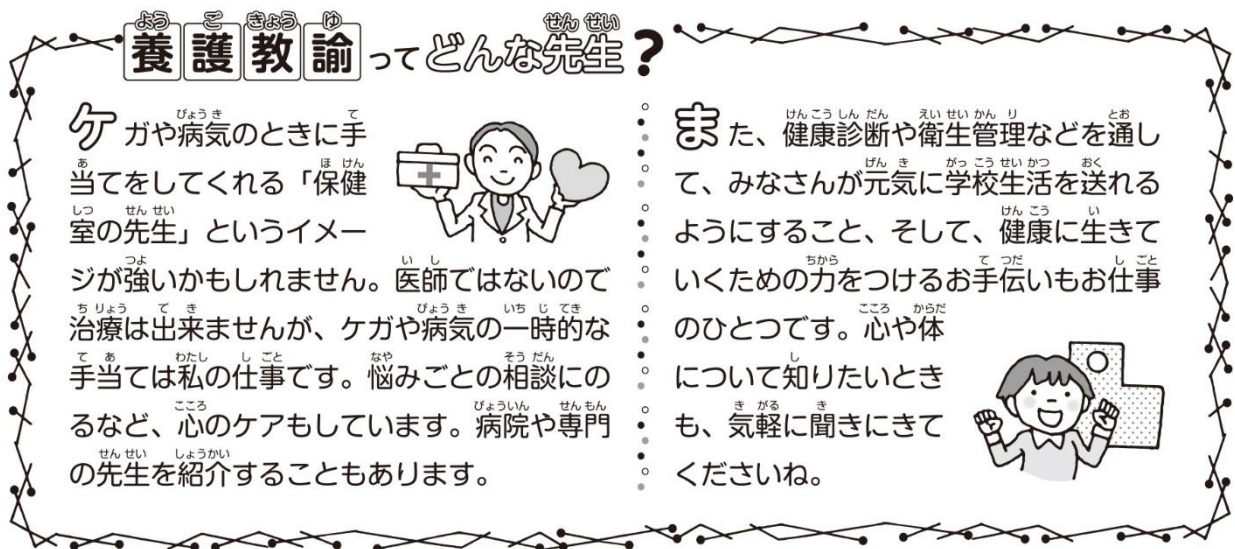 養護教諭ってどんな先生?
ケガや病気のときに手
当てをしてくれる「保健
室の先生」というイメー
ジが強いかもしれません。医師ではないので
治療は出来ませんが、ケガや病気の一時的な
手当ては私の仕事です。悩みごとの相談にの
るなど、心のケアもしています。病院や専門
の先生を紹介することもあります。
また、健康診断や衛生管理などを通し
て、みなさんが元気に学校生活を送れる
ようにすること、そして、健康に生きて
いくための力をつけるお手伝いもお仕事
のひとつです。心や体
について知りたいとき
も、気軽に聞きにきて
くださいね。